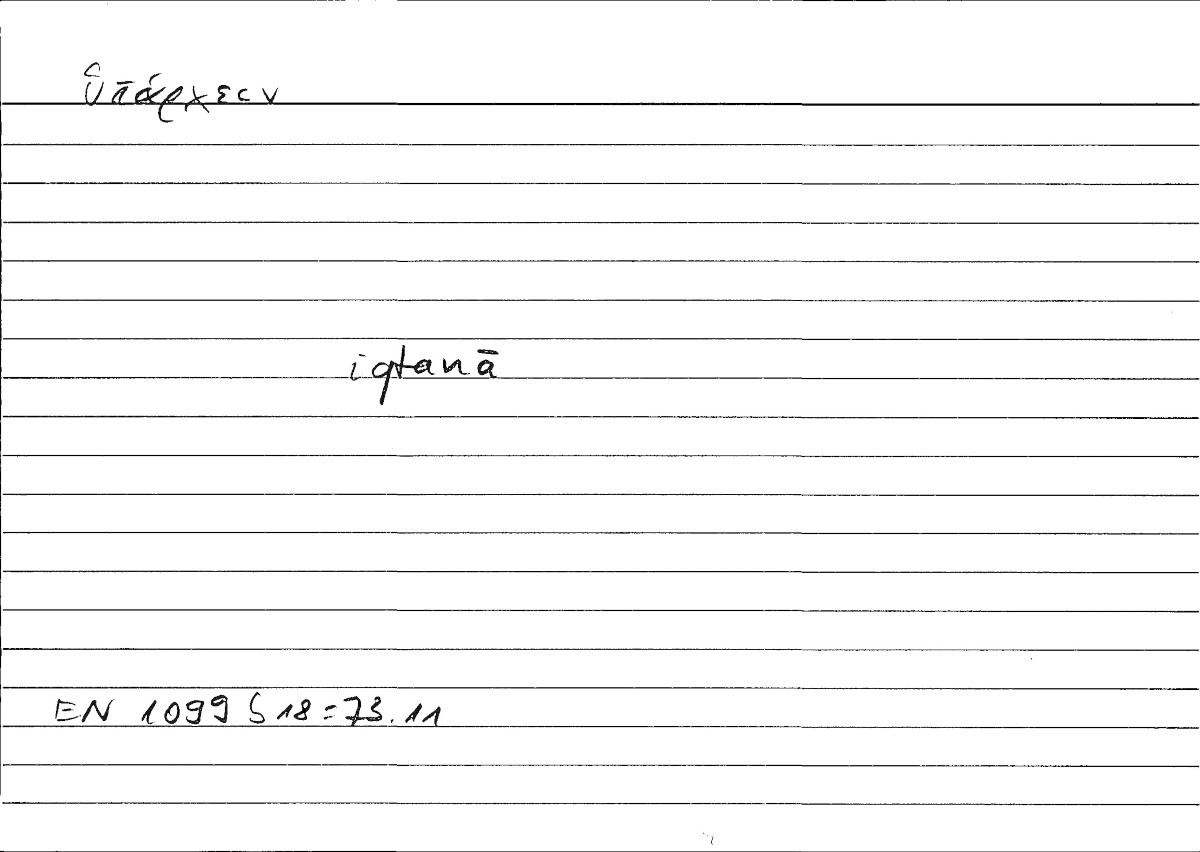 ὑπάρχειν
iqtanā
EN 1099 b 18 = 73.11